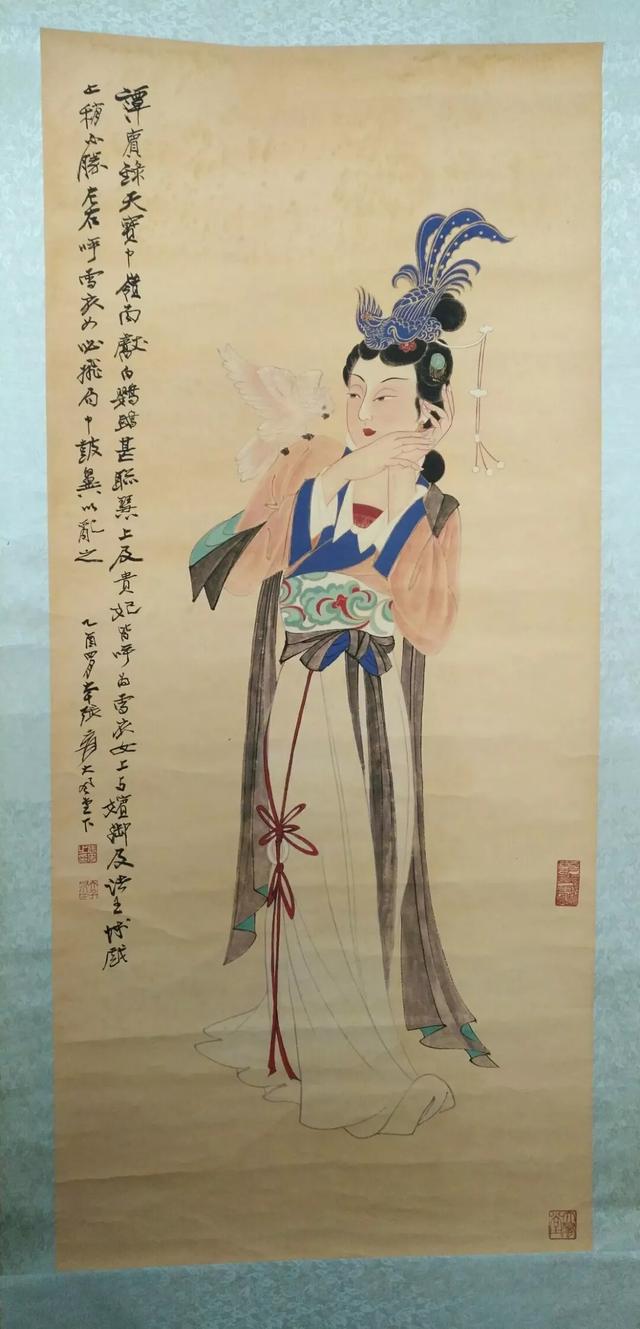 譚賓錄天寶中嶺南獻白鸚鵡甚聡慧上及貴妃皆呼為雪衣女上与嬪御及諸王博戲
上稍不勝左右呼雪衣女必飛局中鼓翼以亂之
乙酉張爰大風堂下